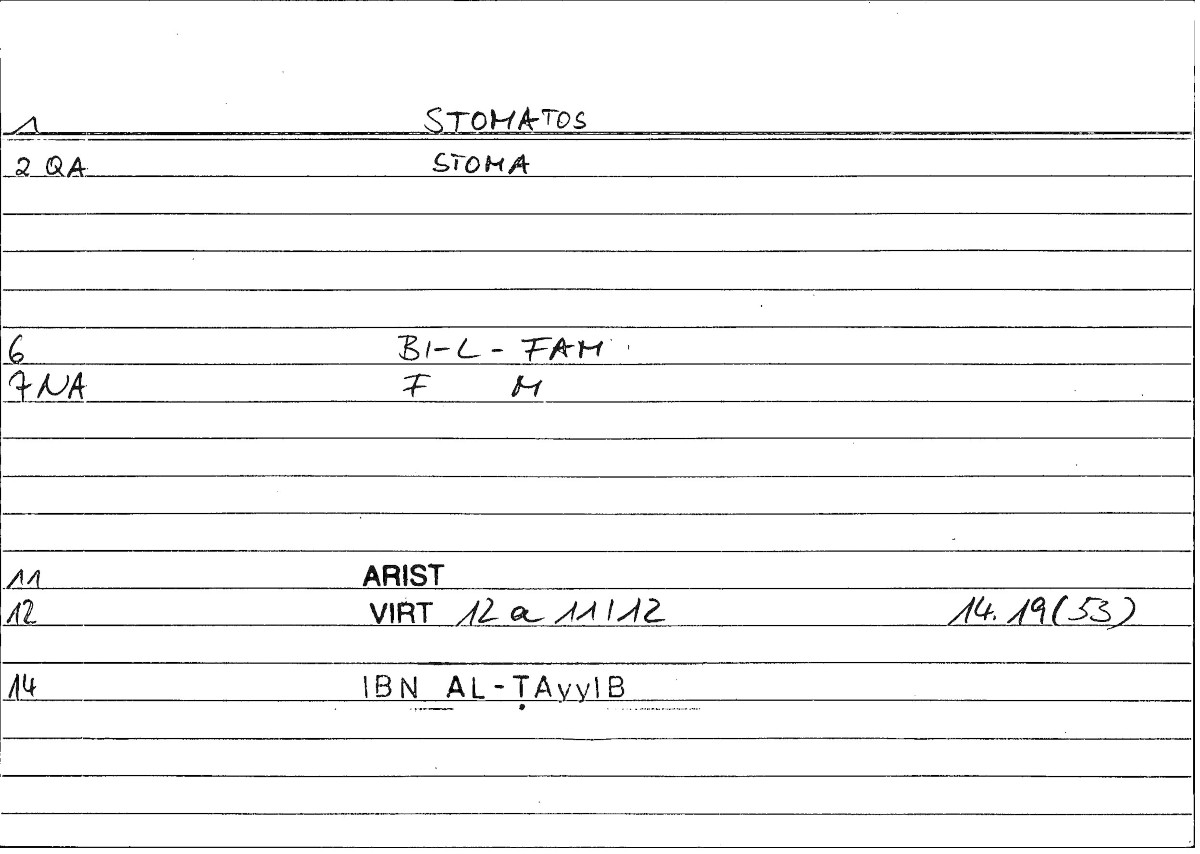 1 STOMATOS
2 QA STOMA
6 BI-L-FAM
7 NA F M
11 ARIST
12 VIRT 12 a 11/12 14.19(53)
14 IBN AL-ṬAyyIB